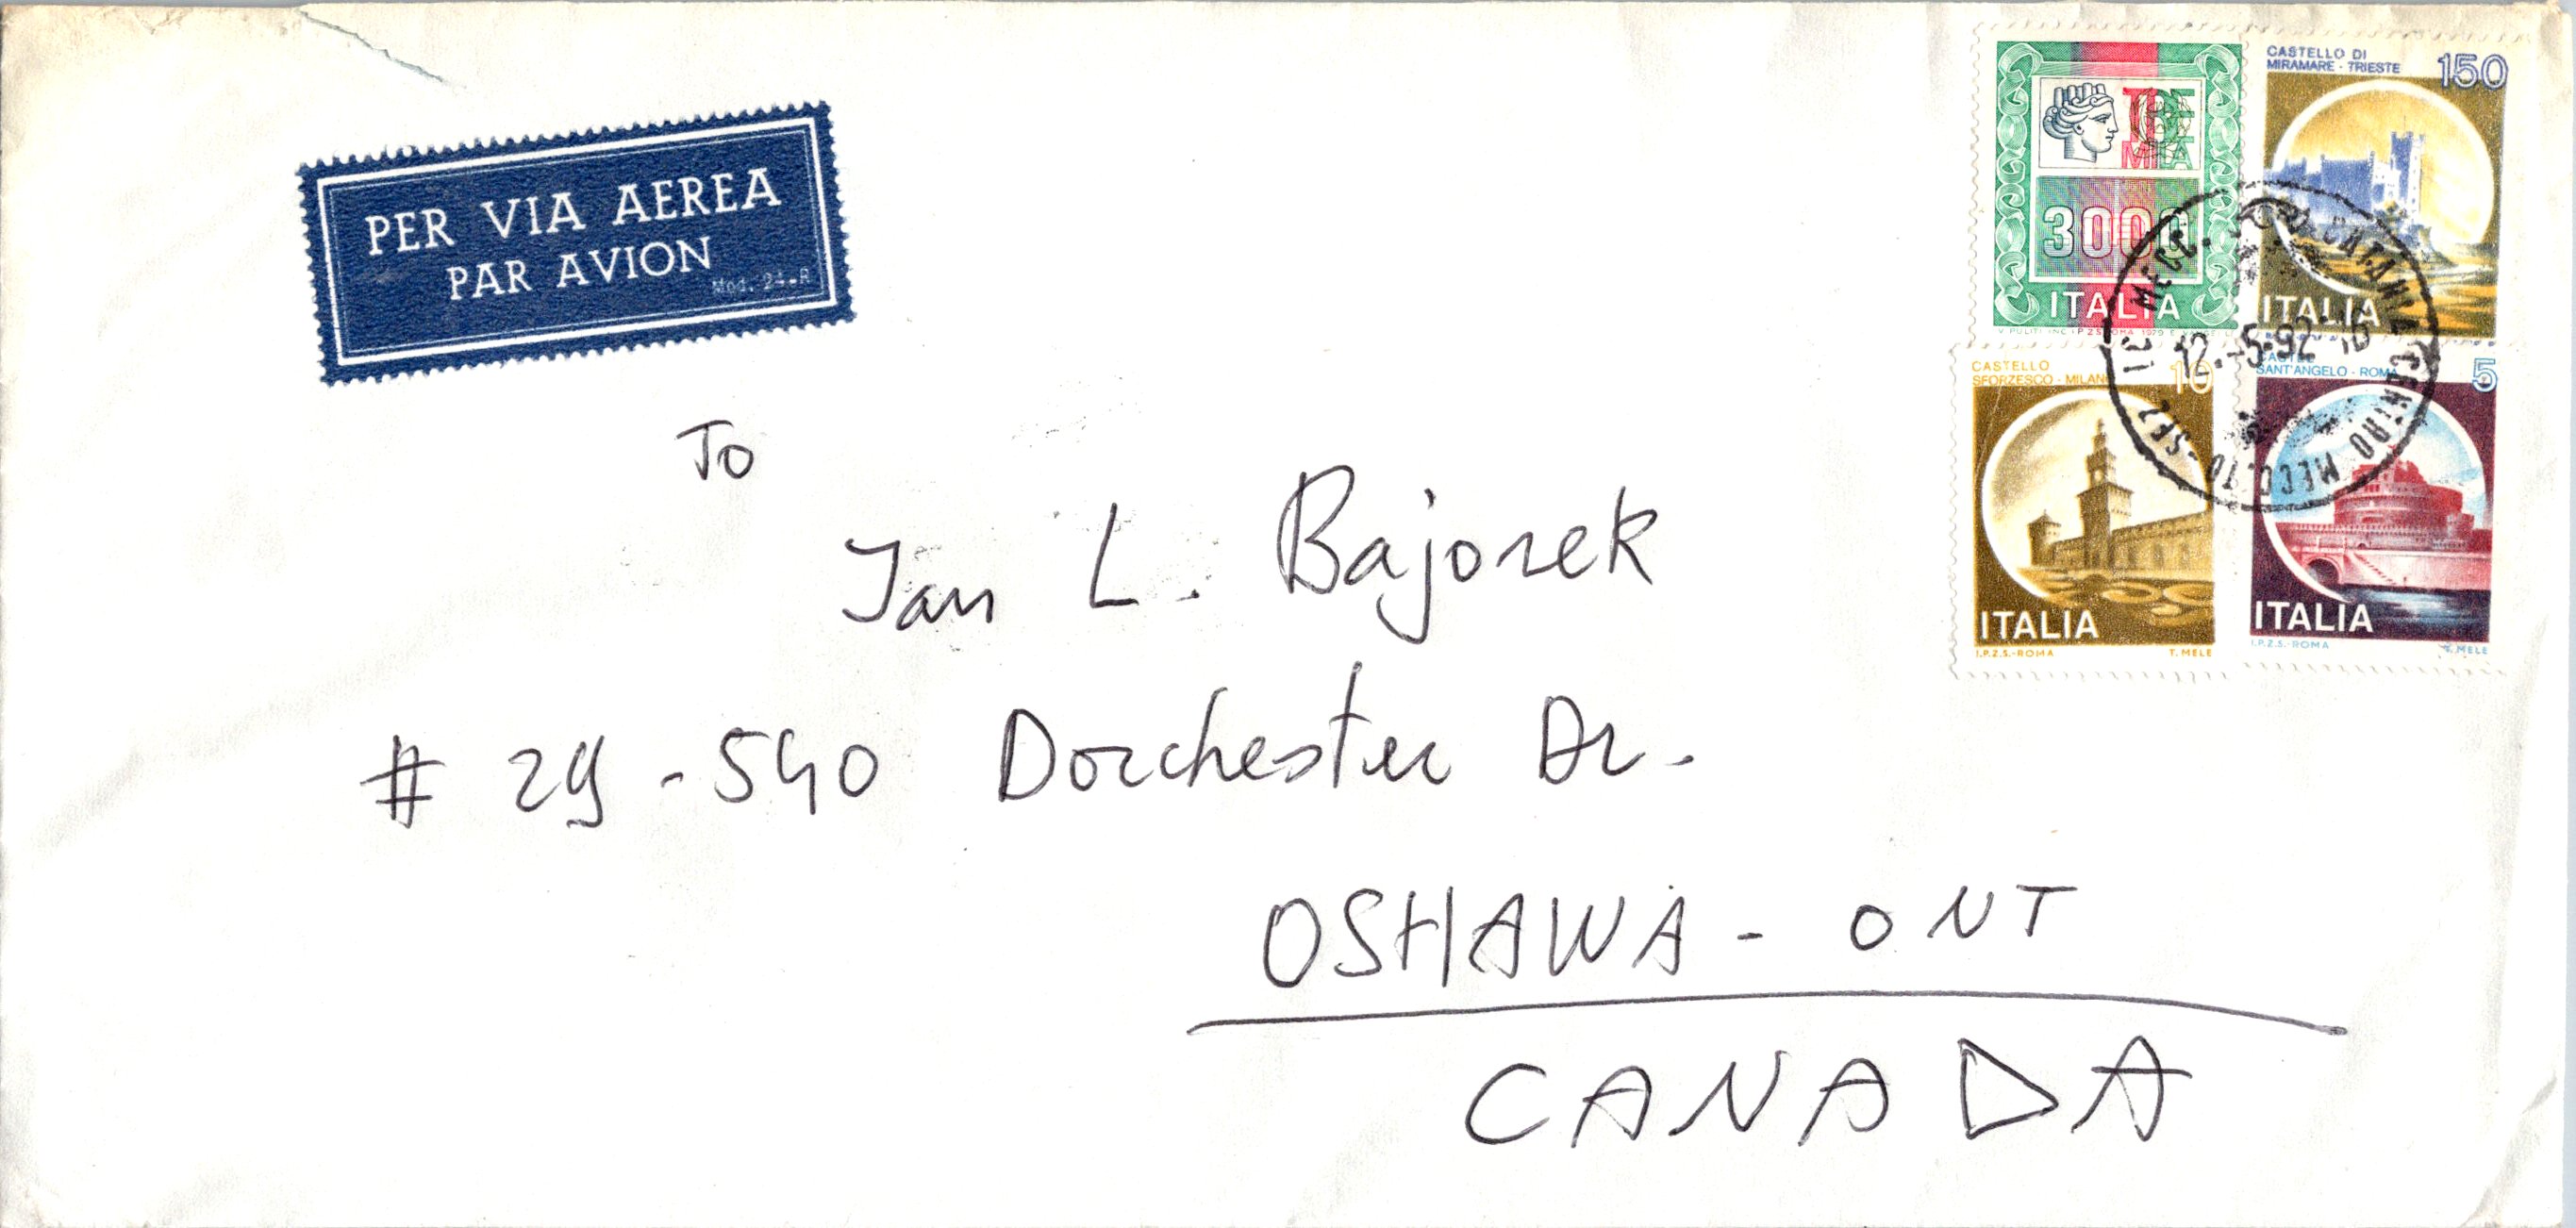 PER VIA AEREA
PAR AVION
Mod. 24-R
TRE
MILA
3000
ITALIA
CASTELLO DI
MIRAMARE - TRIESTE
150
ITALIA
CATANIA CENTRO MECC.
12.-5-92-16
CASTELLO
SFORZESCO - MILANO
10
ITALIA
I.P.Z.S.-ROMA T. MELE
CASTEL
SANT'ANGELO - ROMA
5
ITALIA
I.P.Z.S.-ROMA T. MELE
To
Jan L. Bajorek
# 29 - 540 Dorchester Dr.
OSHAWA - ONT
CANADA